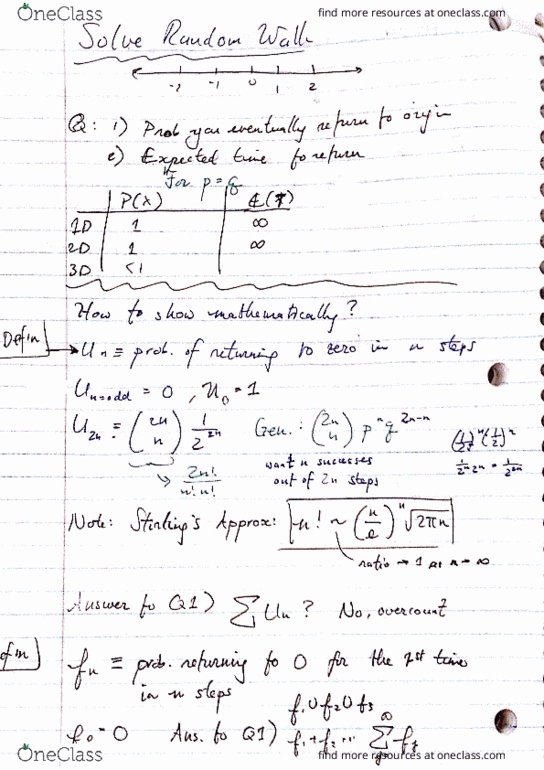 OneClass
find more resources at oneclass.com
Solve Random Walk
-2 -1 0 1 2
Q: 1) Prob you eventually return to origin
2) Expected time to return
For p = q
P(X) E(T)
1D 1 ∞
2D 1 ∞
3D <1
How to show mathematically?
Defin
Un ≡ prob. of returning to zero in n steps
Un=odd = 0 , U0 = 1
U2n ≡ (2n n) 1/2^2n Gen.: (2n n) p^n q^2n-n (1/2)^n (1/2)^n
want n successes 1/2^2n = 1/2^2n
2n!/n!n! out of 2n steps
Note: Stirling's Approx: n! ~ (n/e)^n √2πn
ratio → 1 as n → ∞
Answer to Q1) ∑ Un ? No, overcount
fn ≡ prob. returning to 0 for the 1st time
in n steps f1 U f2 U f3
f0 = 0 Ans. to Q1) f1 + f2 ... ∑^∞ fj
OneClass
find more resources at oneclass.com